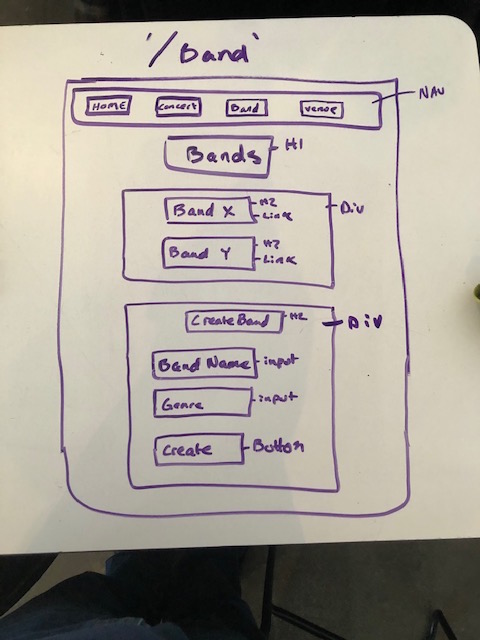 '/Band'
HOME Concert Band Venue NAV
Bands H1
Band X H2
Link
Div
Band Y H2
Link
Create Band H2
Div
Band Name input
Genre input
Create Button